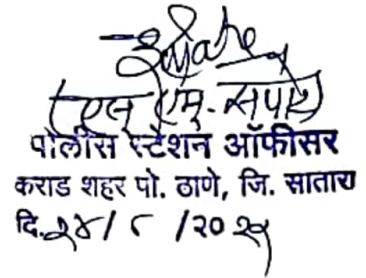 (एस एम. सपाटे)
पोलीस स्टेशन ऑफीसर
कराड शहर पो. ठाणे, जि. सातारा
दि. २४/ ८ /२०२५